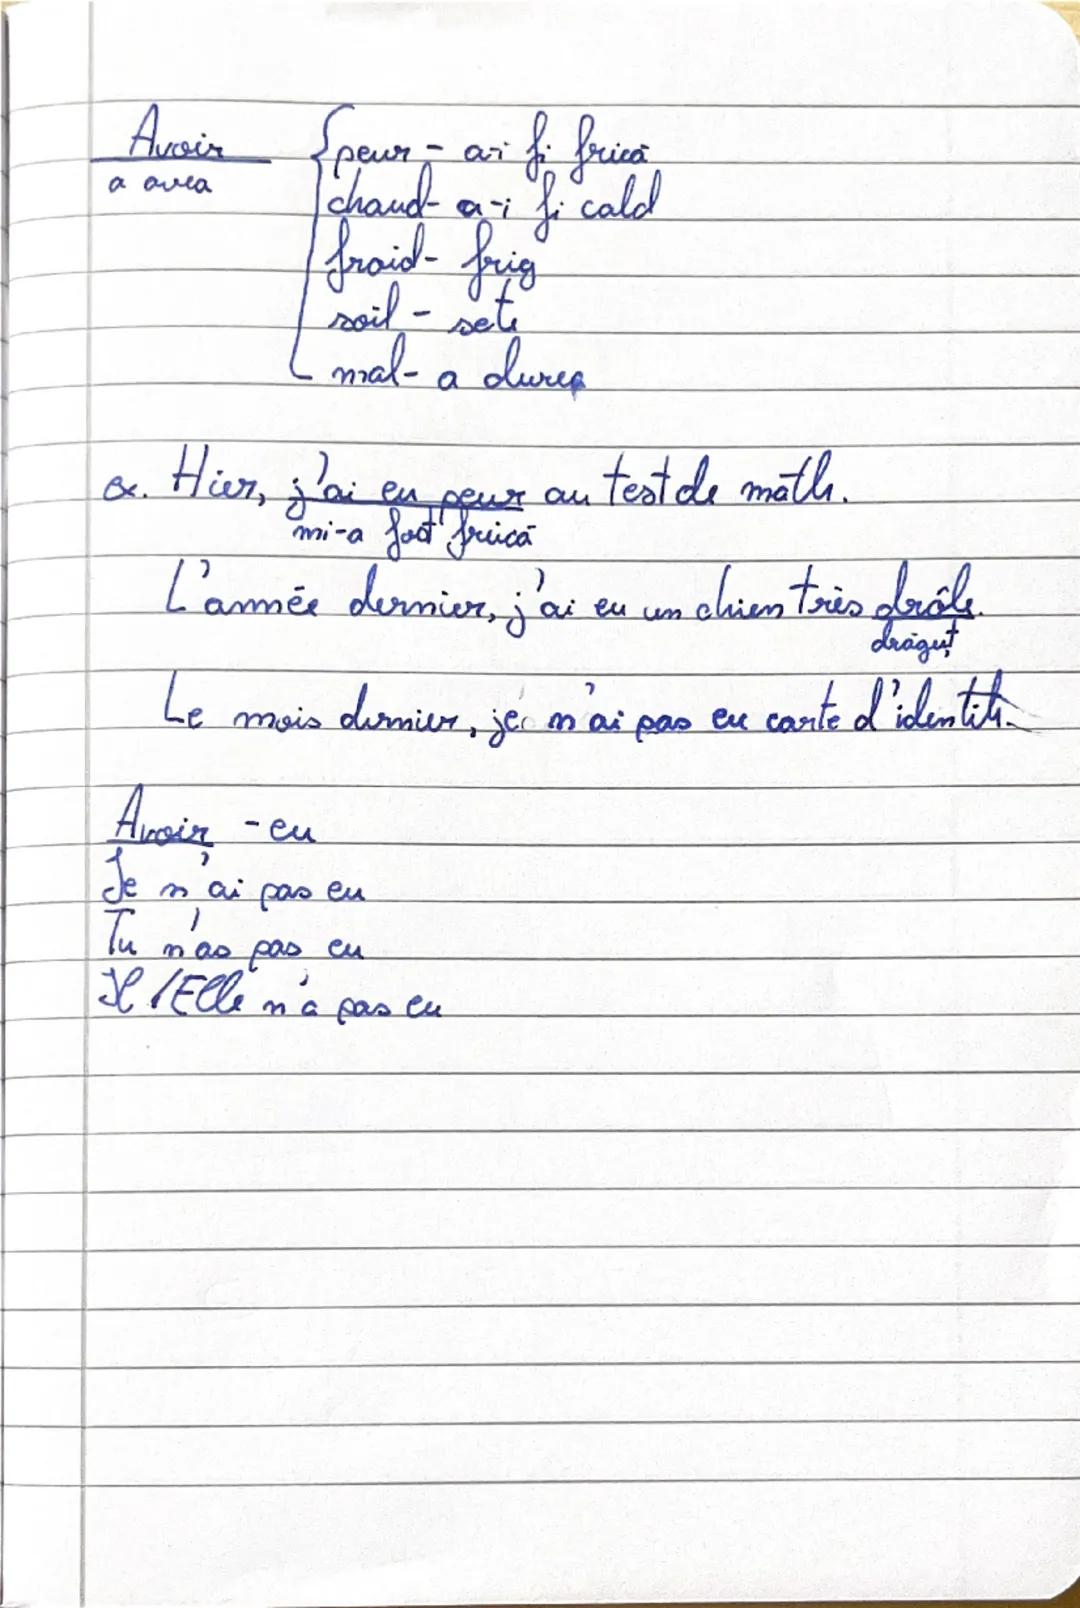 Avoir {peur - a-i fi frică
a avea chaud - a-i fi cald
froid - frig
soil - sete
mal - a durea
ex. Hier, j'ai eu peur au test de math.
mi-a fost frică
L'année dernier, j'ai eu un chien très drôle.
drăguț
Le mois dernier, je n'ai pas eu carte d'identité.
Avoir - eu
Je n'ai pas eu
Tu n'as pas eu
Il /Elle n'a pas eu